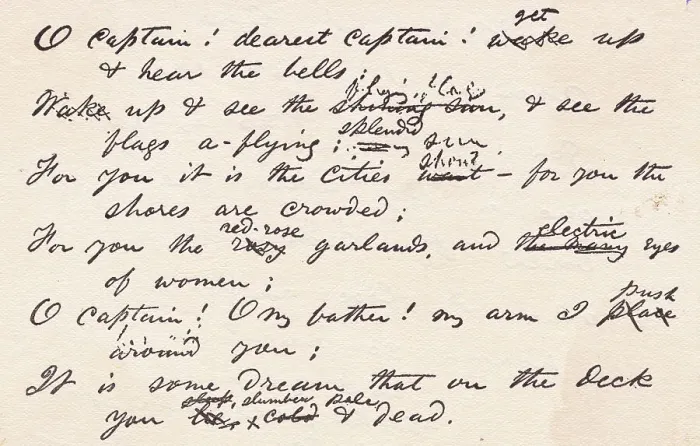 get
O captain! dearest captain! wake up
& hear the bells;
Wake up & see the shining sun, & see the
splendid
flags a-flying; sun,
shout
For you it is the cities want – for you the
shores are crowded;
red-rose electric
For you the rosy garlands, and the many eyes
of women;
push
O captain! O my father! my arm I place
around you;
It is some dream that on the deck
slumber, pale,
you & dead.